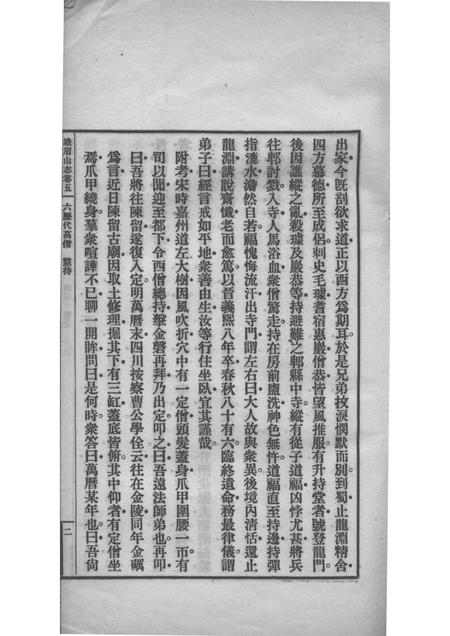 出家今既剖欲求道正以西方為期耳於是兄弟抆淚憫默而別到蜀止龍淵精舍
四方慕德所至成侶刺史毛璩耆宿惠嚴僧恭皆望風推服有升持堂者號登龍門
後因譙縱之亂殺璩及嚴恭等持避難之郫縣中寺縱有從子道福凶悖尤甚將兵
往郫討戮入寺人馬浴血衆僧驚走持在房前盥洗神色無忤道福直至持邊持彈
指漉水澹然自若福愧悔流汗出寺門謂左右曰大人故與衆異後境內清恬還止
龍淵講說齋懺老而愈篤以晉義熙八年卒春秋八十有六臨終遺命務最律儀謂
弟子曰經言戒如平地衆善由生汝等行住坐臥宜其謹哉
附考宋時嘉州道左大樹因風吹折穴中有一定僧頭髮蓋身爪甲圍腰一帀有
司以聞迎至都下令西僧總持擊金磬再拜乃出定叩之曰吾遠法師弟也再叩
曰吾將往陳留遂復入定明萬曆末四川按察曹公學佺云往在金陵同年金礪
為言近日陳留古廟因取土修理掘其下有三缸蓋底皆俯其中仰者有定僧坐
焉爪甲繞身羣衆喧譁不已聊一開眸問曰是何時衆答曰萬曆某年也曰吾尙
峨眉山志卷五 六歷代高僧 慧持
二